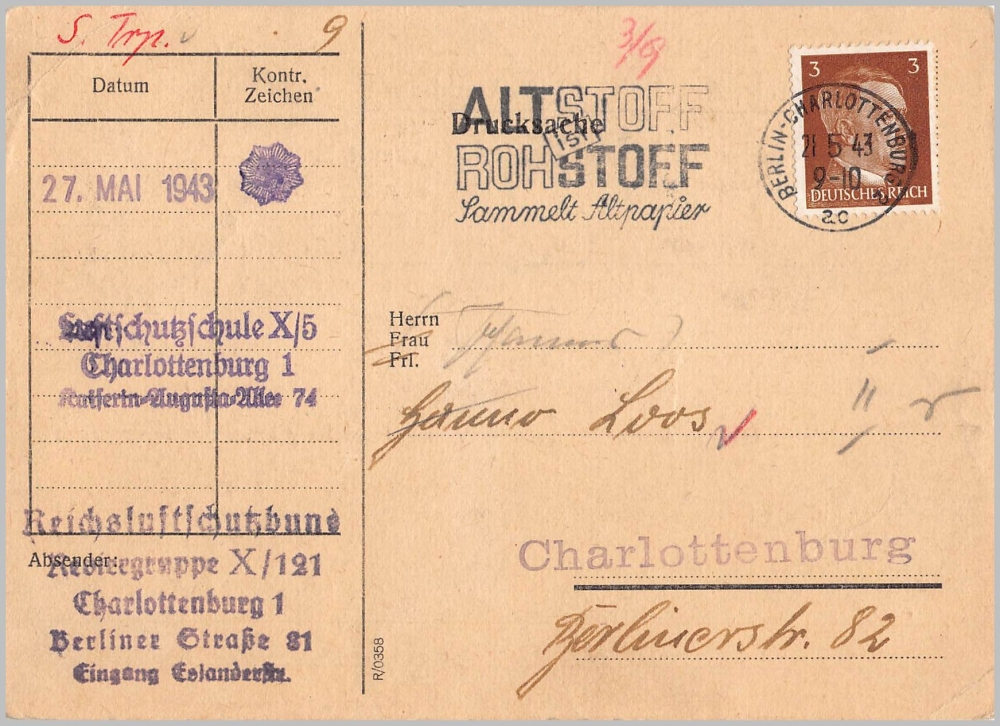 S. Trp.
9
3/9
Datum
Kontr.
Zeichen
27. MAI 1943
Luftschutzschule X/5
Charlottenburg 1
Kaiserin-Augusta-Allee 74
Reichsluftschutzbund
Absender:
Reviergruppe X/121
Charlottenburg 1
Berliner Straße 81
Eingang Eosanderstr.
R/0358
ALTSTOFF
Drucksache
ist
ROHSTOFF
Sammelt Altpapier
3 3
DEUTSCHES REICH
BERLIN-CHARLOTTENBURG
21 5 43
9-10
ac
Herrn
Frau
Frl.
Hanno Loos
"
Charlottenburg
Berlinerstr. 82